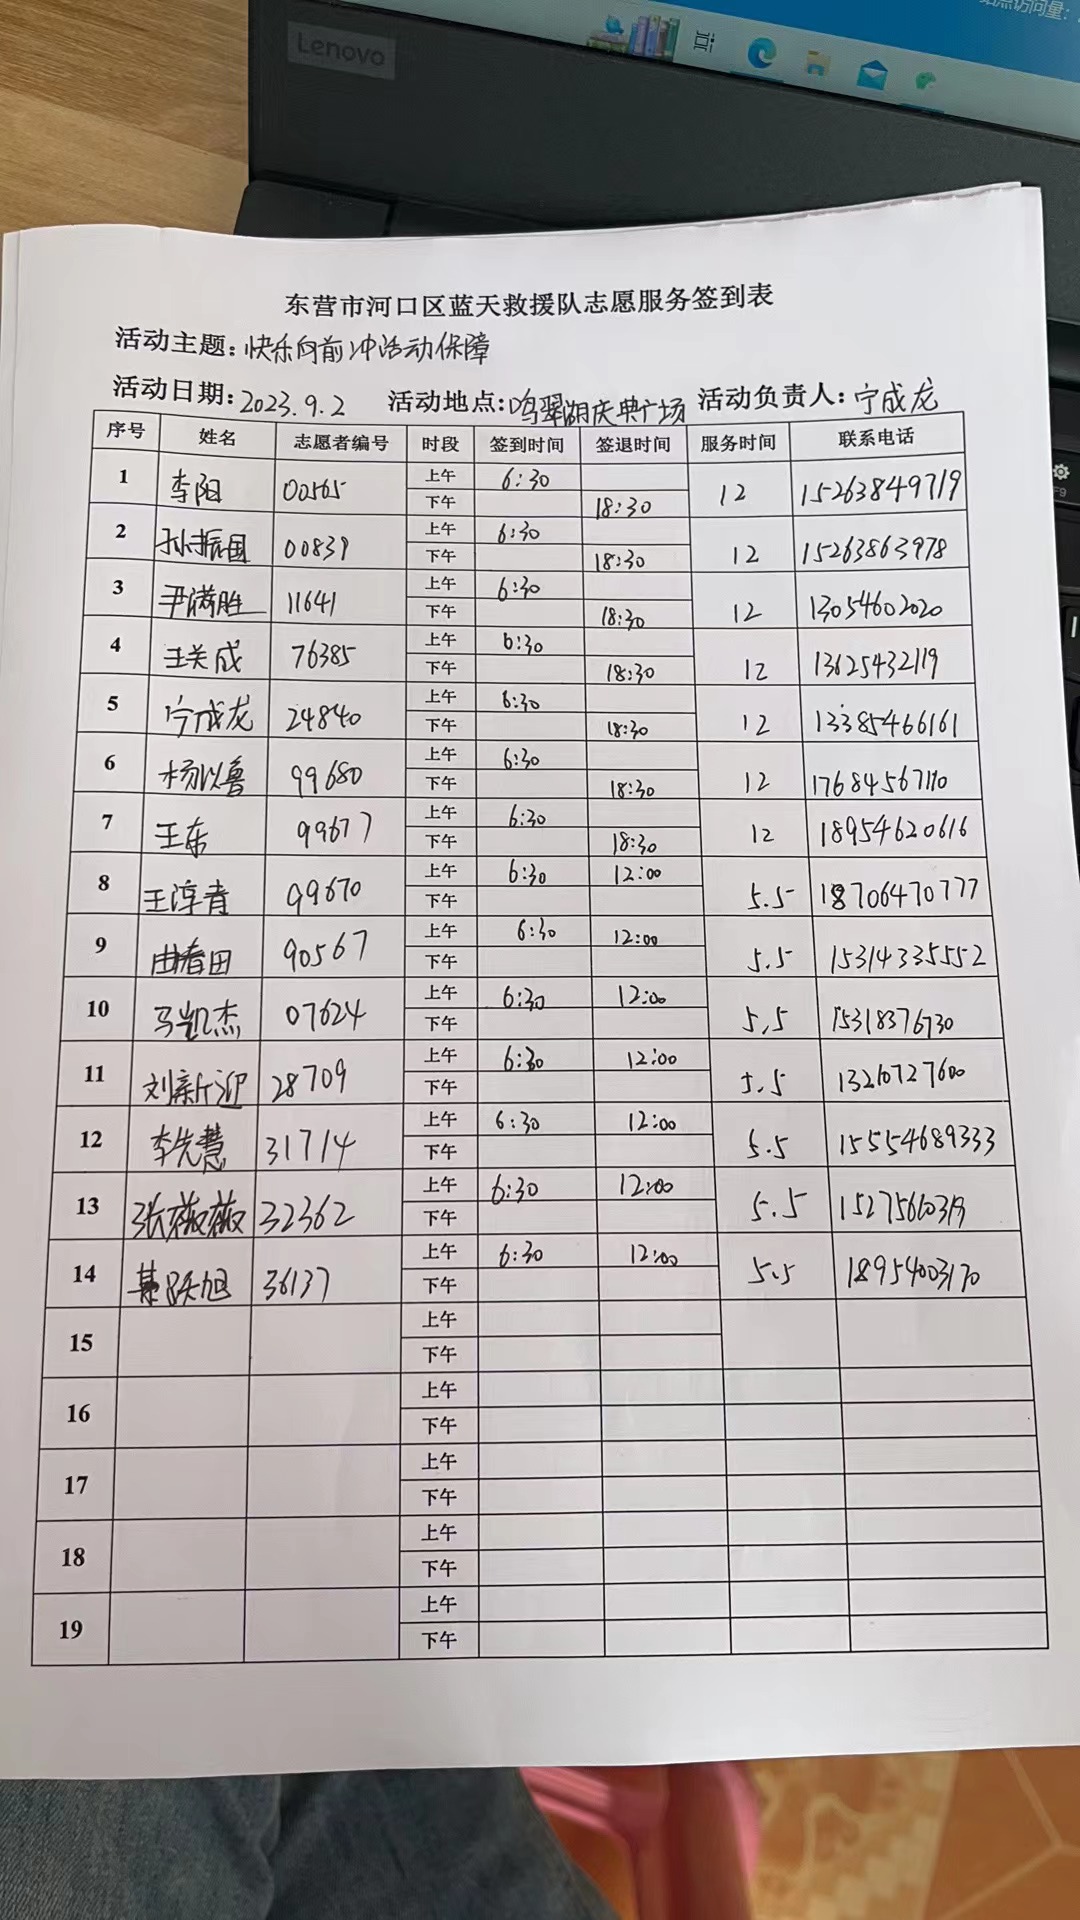 站点访问量:
Lenovo
F9
东营市河口区蓝天救援队志愿服务签到表
活动主题:快乐向前冲活动保障
活动日期:2023.9.2 活动地点:鸣翠湖庆典广场 活动负责人:宁成龙
序号 姓名 志愿者编号 时段 签到时间 签退时间 服务时间 联系电话
1 李阳 00565 上午 6:30 12 15263849719
下午 18:30
2 孙振国 00839 上午 6:30 12 15263863978
下午 18:30
3 尹满胜 11641 上午 6:30 12 13054602020
下午 18:30
4 王关成 76385 上午 6:30 12 13625432119
下午 18:30
5 宁成龙 24840 上午 6:30 12 13385466161
下午 18:30
6 杨以鲁 99680 上午 6:30 12 17684567110
下午 18:30
7 王东 99677 上午 6:30 12 18954620616
下午 18:30
8 王淳青 99670 上午 6:30 12:00 5.5 18706470777
下午
9 曲春田 90567 上午 6:30 12:00 5.5 15314335552
下午
10 马凯杰 07624 上午 6:30 12:00 5.5 15318376730
下午
11 刘新迎 28709 上午 6:30 12:00 5.5 13210727600
下午
12 李先慧 31714 上午 6:30 12:00 5.5 15554689333
下午
13 张薇薇 32362 上午 6:30 12:00 5.5
下午
14 跃旭 36137 上午 6:30 12:00 5.5 18954003170
下午
15 上午
下午
16 上午
下午
17 上午
下午
18 上午
下午
19 上午
下午